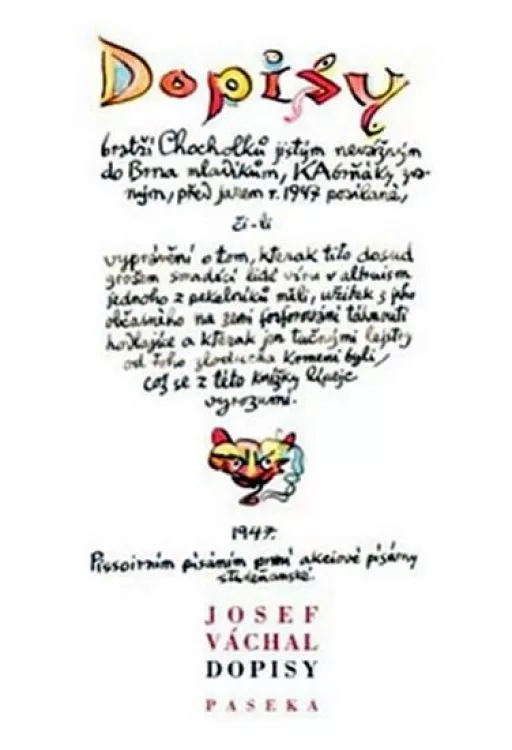 Dopisy
bratří Chocholků jistým nevážným
do Brna mladíkům, KAbrňáky zva-
ným, před jarem r. 1947 posílané,
či-li
vyprávění o tom, kterak tito dosud
grošem smradící lidé víru v altruism
jednoho z pekelníků měli, užitek z jeho
občasného na zemi fosforování táhnouti
hodlajíce a kterak jen tučnými lejstry
od toho zloducha krmeni byli,
což se z této knížky lépeje
vyrozumí.
1947.
Pissoirním písáním první akciové písárny
studeňanské.
JOSEF
VÁCHAL
DOPISY
PASEKA